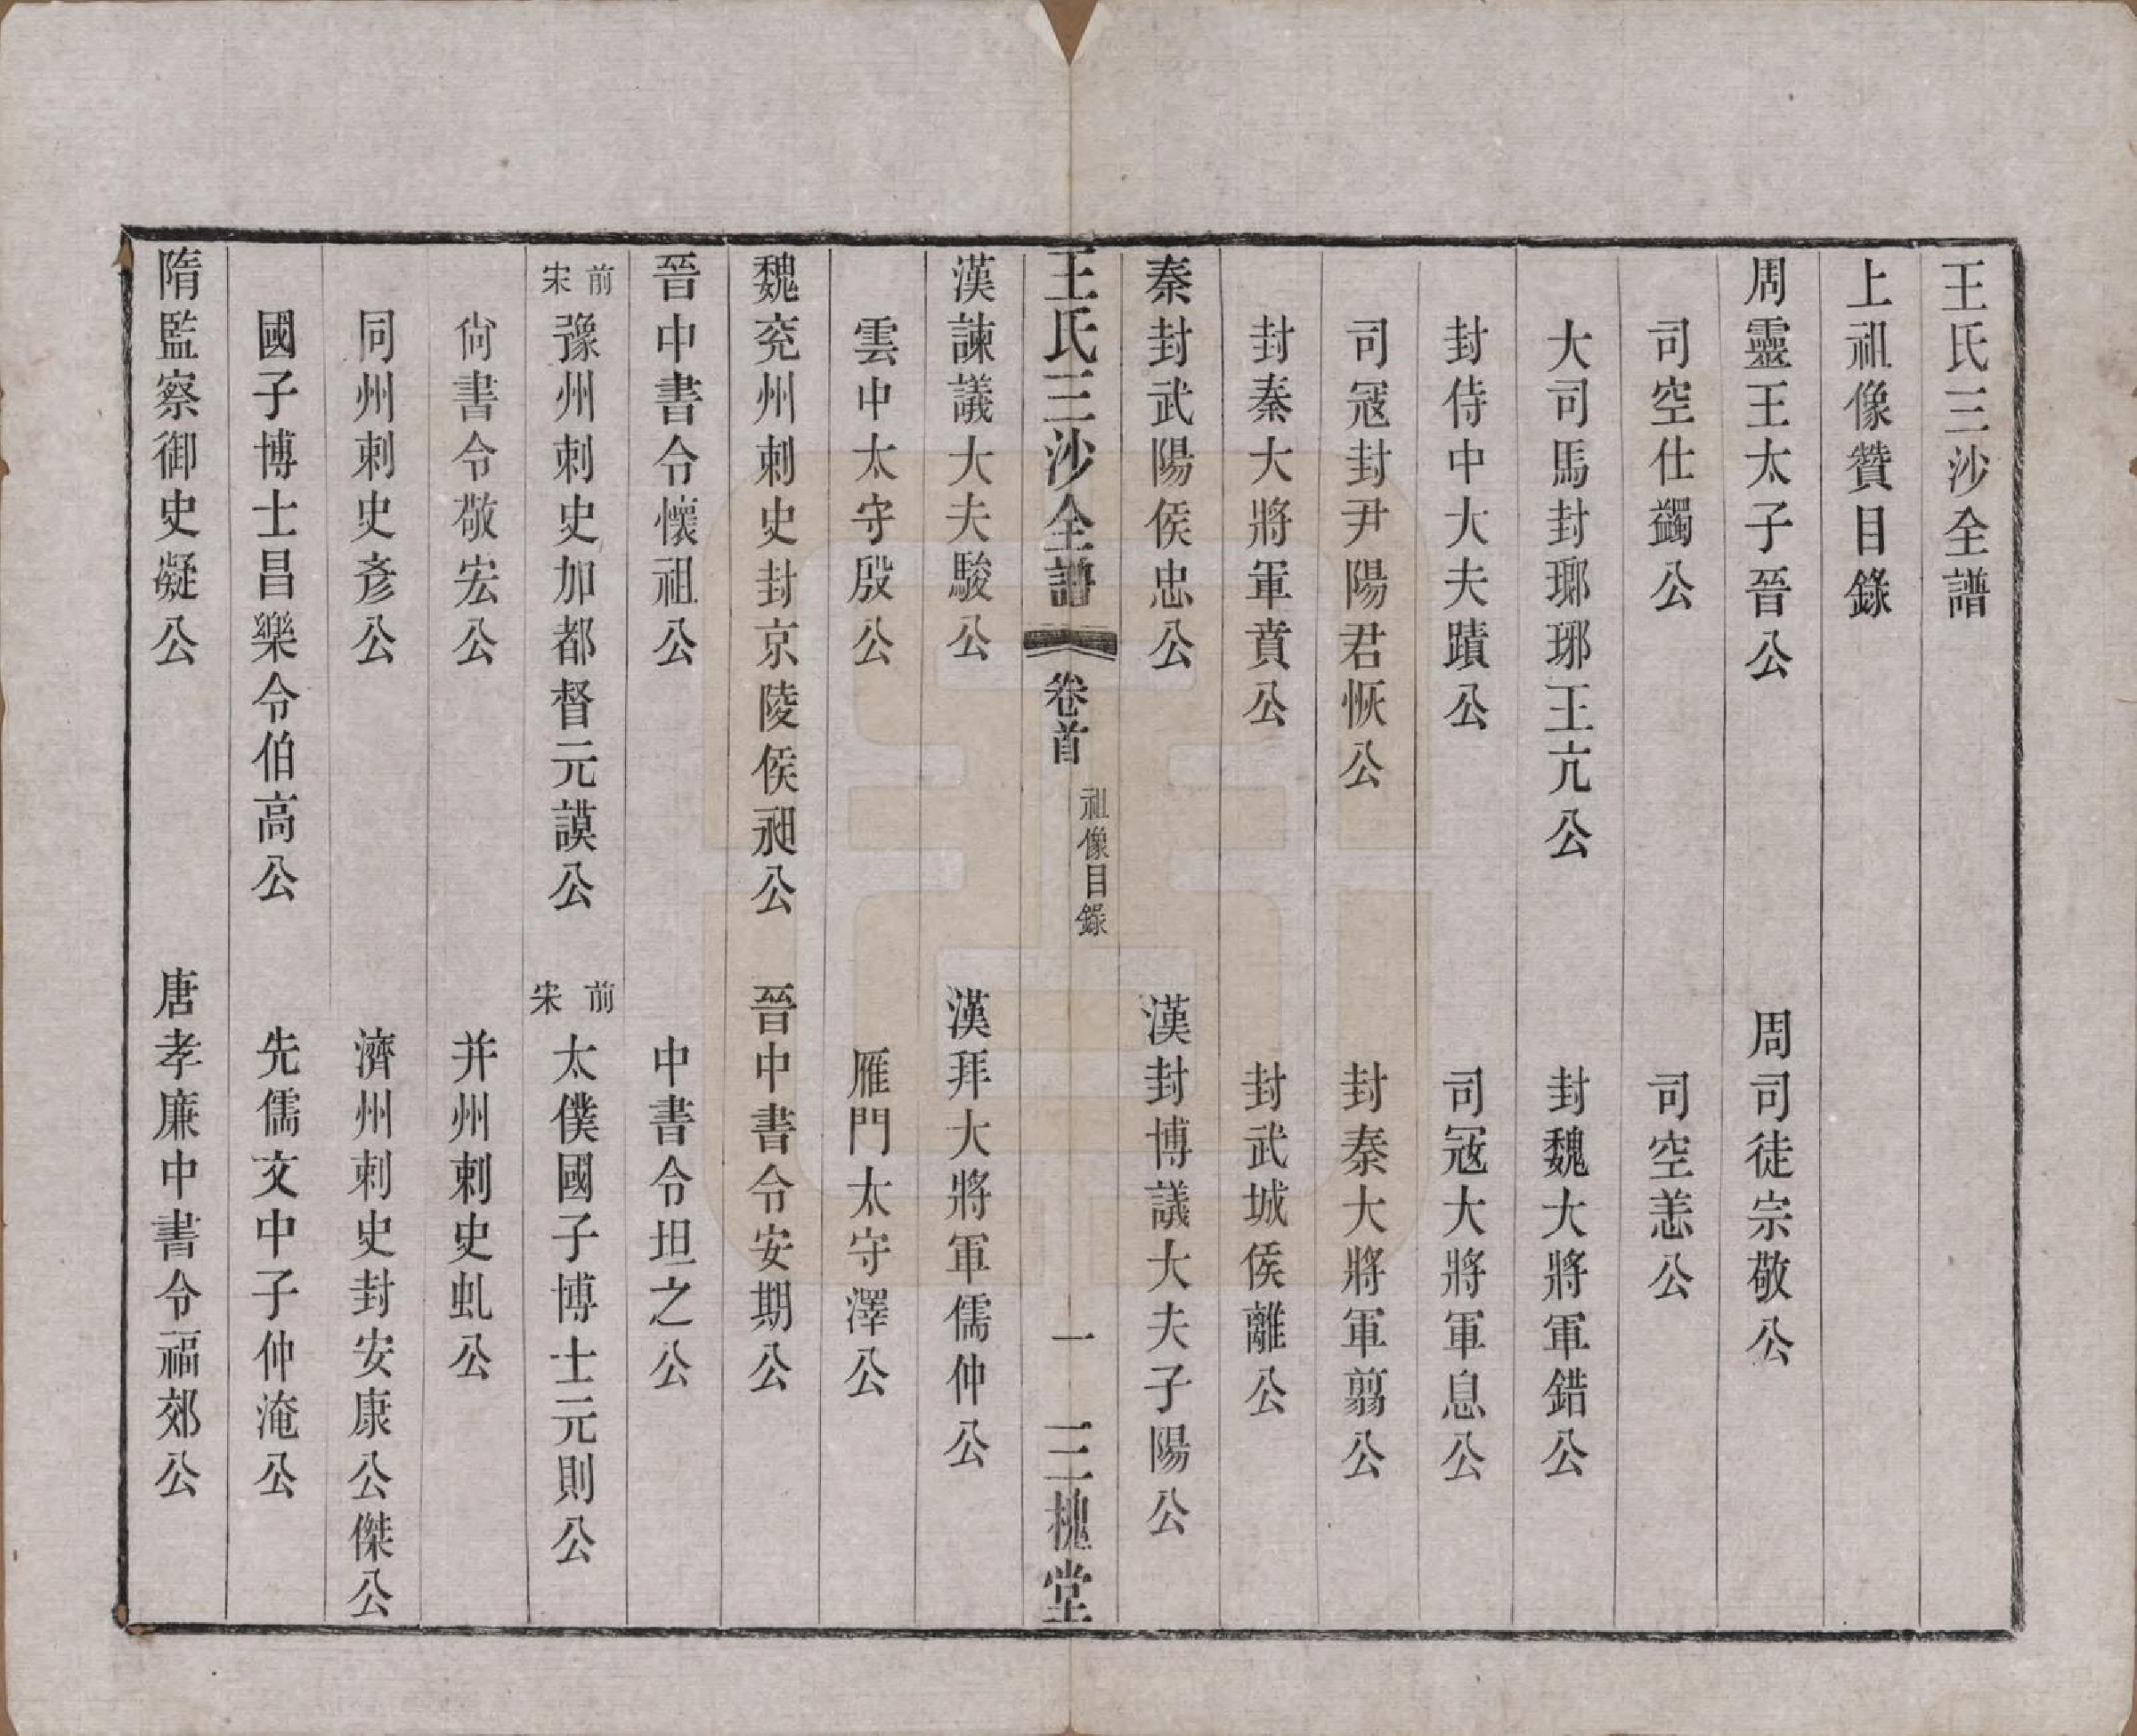 王氏三沙全譜
上祖像贊目錄
周靈王太子晉公　周司徒宗敬公
司空仕蠲公　司空恙公
大司馬封瑯琊王亢公　封魏大將軍錯公
封侍中大夫蹟公　司冦大將軍息公
司冦封尹陽君恢公　封秦大將軍翦公
封秦大將軍賁公　封武城侯離公
秦封武陽侯忠公　漢封博議大夫子陽公
王氏三沙全譜　卷首　祖像目錄　一　三槐堂
漢諫議大夫駿公　漢拜大將軍儒仲公
雲中太守殷公　雁門太守澤公
魏兖州刺史封京陵侯昶公　晉中書令安期公
晉中書令懷祖公　中書令坦之公
前宋豫州刺史加都督元謨公　前宋太僕國子博士元則公
尙書令敬宏公　并州刺史虬公
同州刺史彥公　濟州刺史封安康公傑公
國子博士昌樂令伯高公　先儒文中子仲淹公
隋監察御史凝公　唐孝廉中書令福郊公